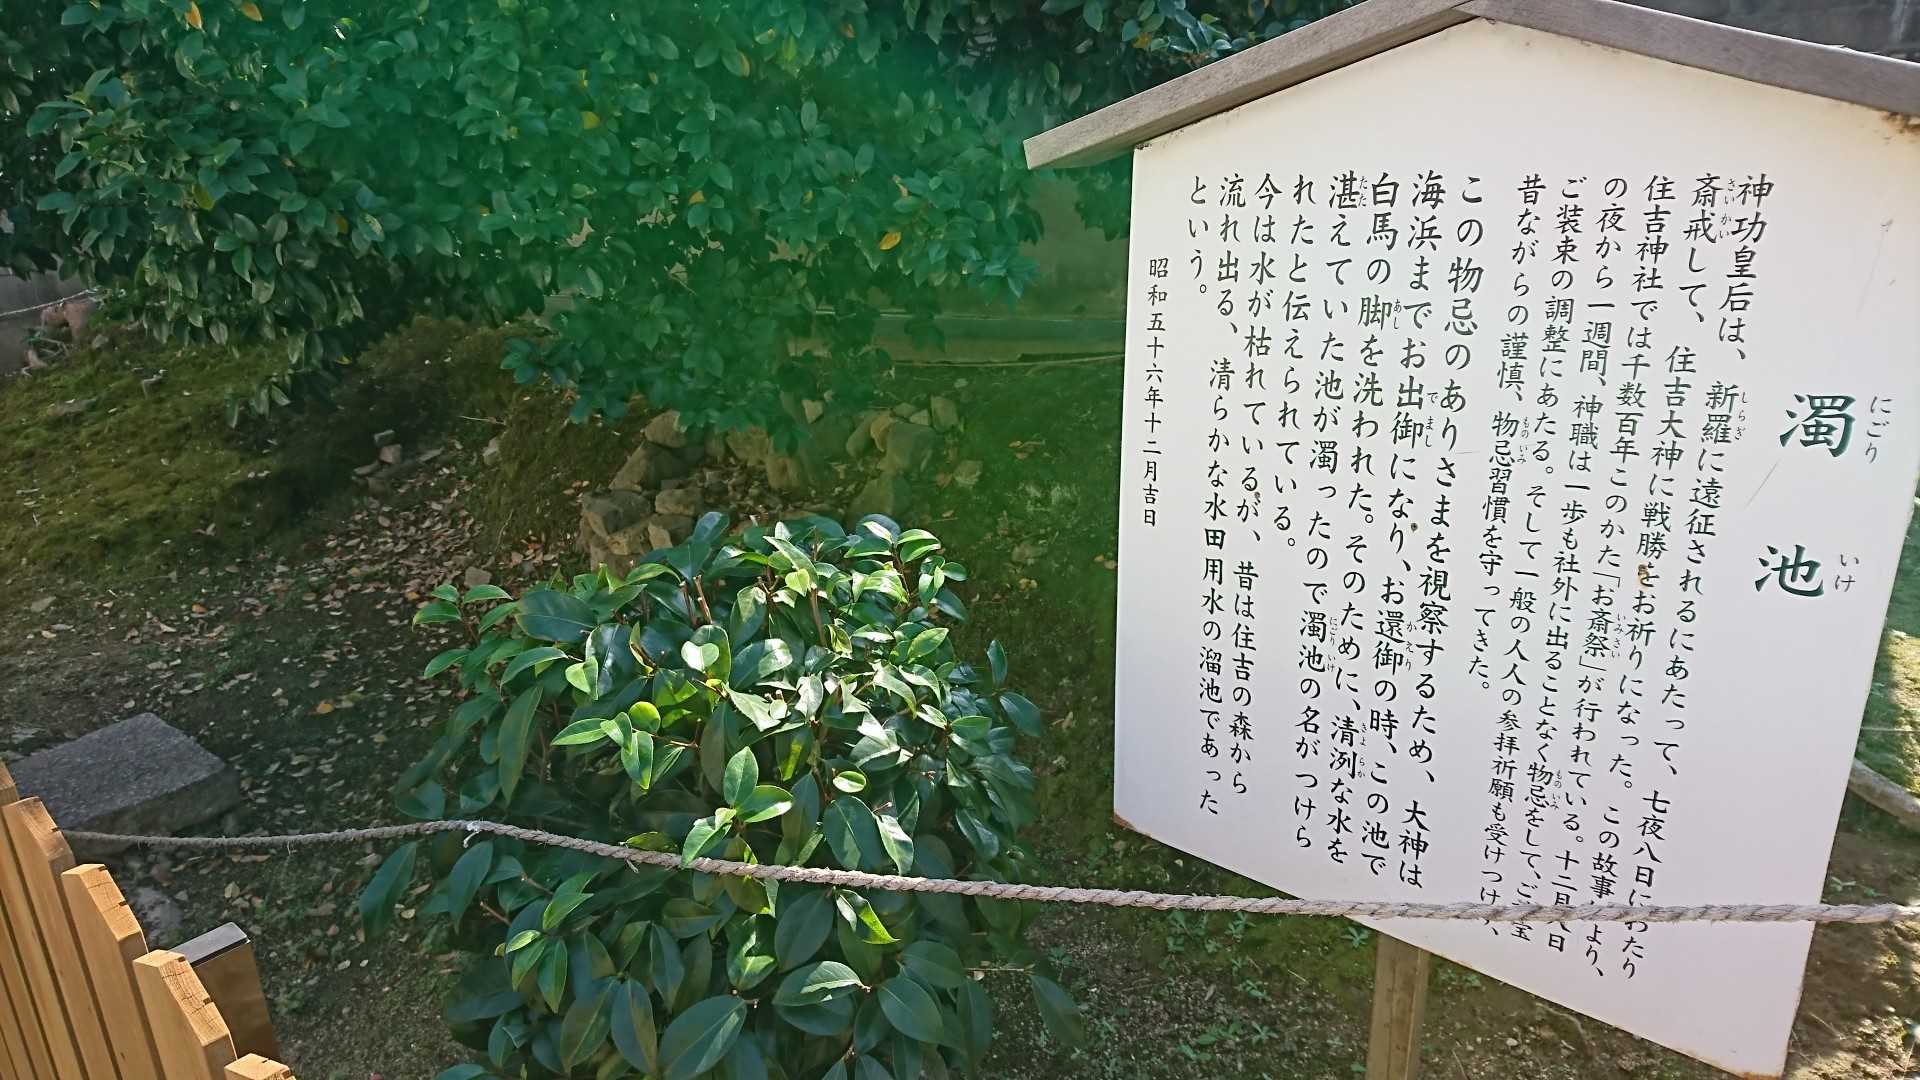 濁池
にごりいけ
神功皇后は、新羅に遠征されるにあたって、七夜八日にわたり
斎戒して、住吉大神に戦勝をお祈りになった。この故事により、
住吉神社では千数百年このかた「お斎祭」が行われている。十二月八日
の夜から一週間、神職は一歩も社外に出ることなく物忌をして、ご
ご装束の調整にあたる。そして一般の人人の参拝祈願も受けつけ
昔ながらの謹慎、物忌習慣を守ってきた。
この物忌のありさまを視察するため、大神は
海浜までお出御になり、お還御の時、この池で
白馬の脚を洗われた。そのために、清洌な水を
湛えていた池が濁ったので濁池の名がつけら
れたと伝えられている。
今は水が枯れているが、昔は住吉の森から
流れ出る、清らかな水田用水の溜池であった
という。
昭和五十六年十二月吉日